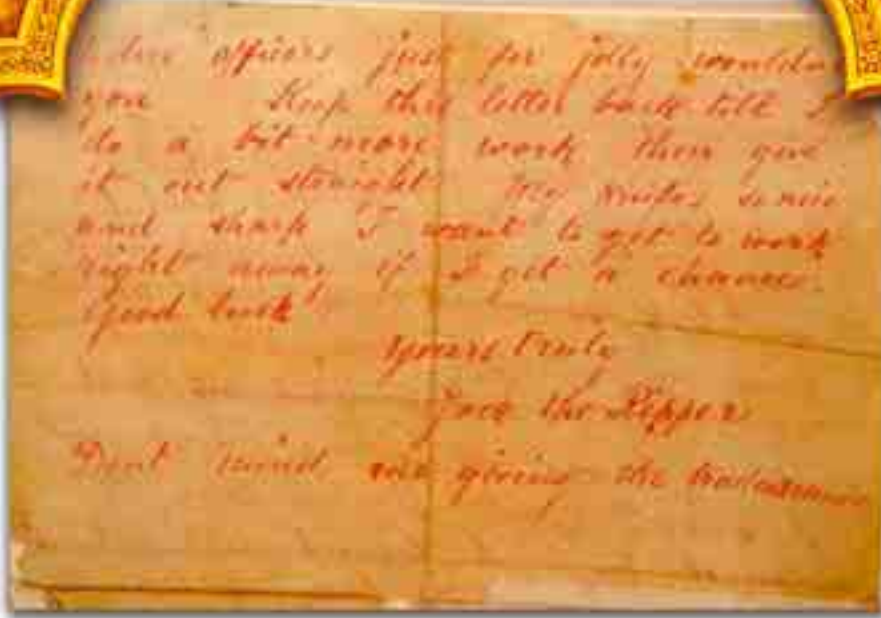 officers just for jolly wouldn
you Keep this letter back till I
do a bit more work then give
it out straight My knife's so nice
and sharp I want to get to work
right away if I get a chance.
Good luck
yours truly
Jack the Ripper
Dont mind me giving the trade name